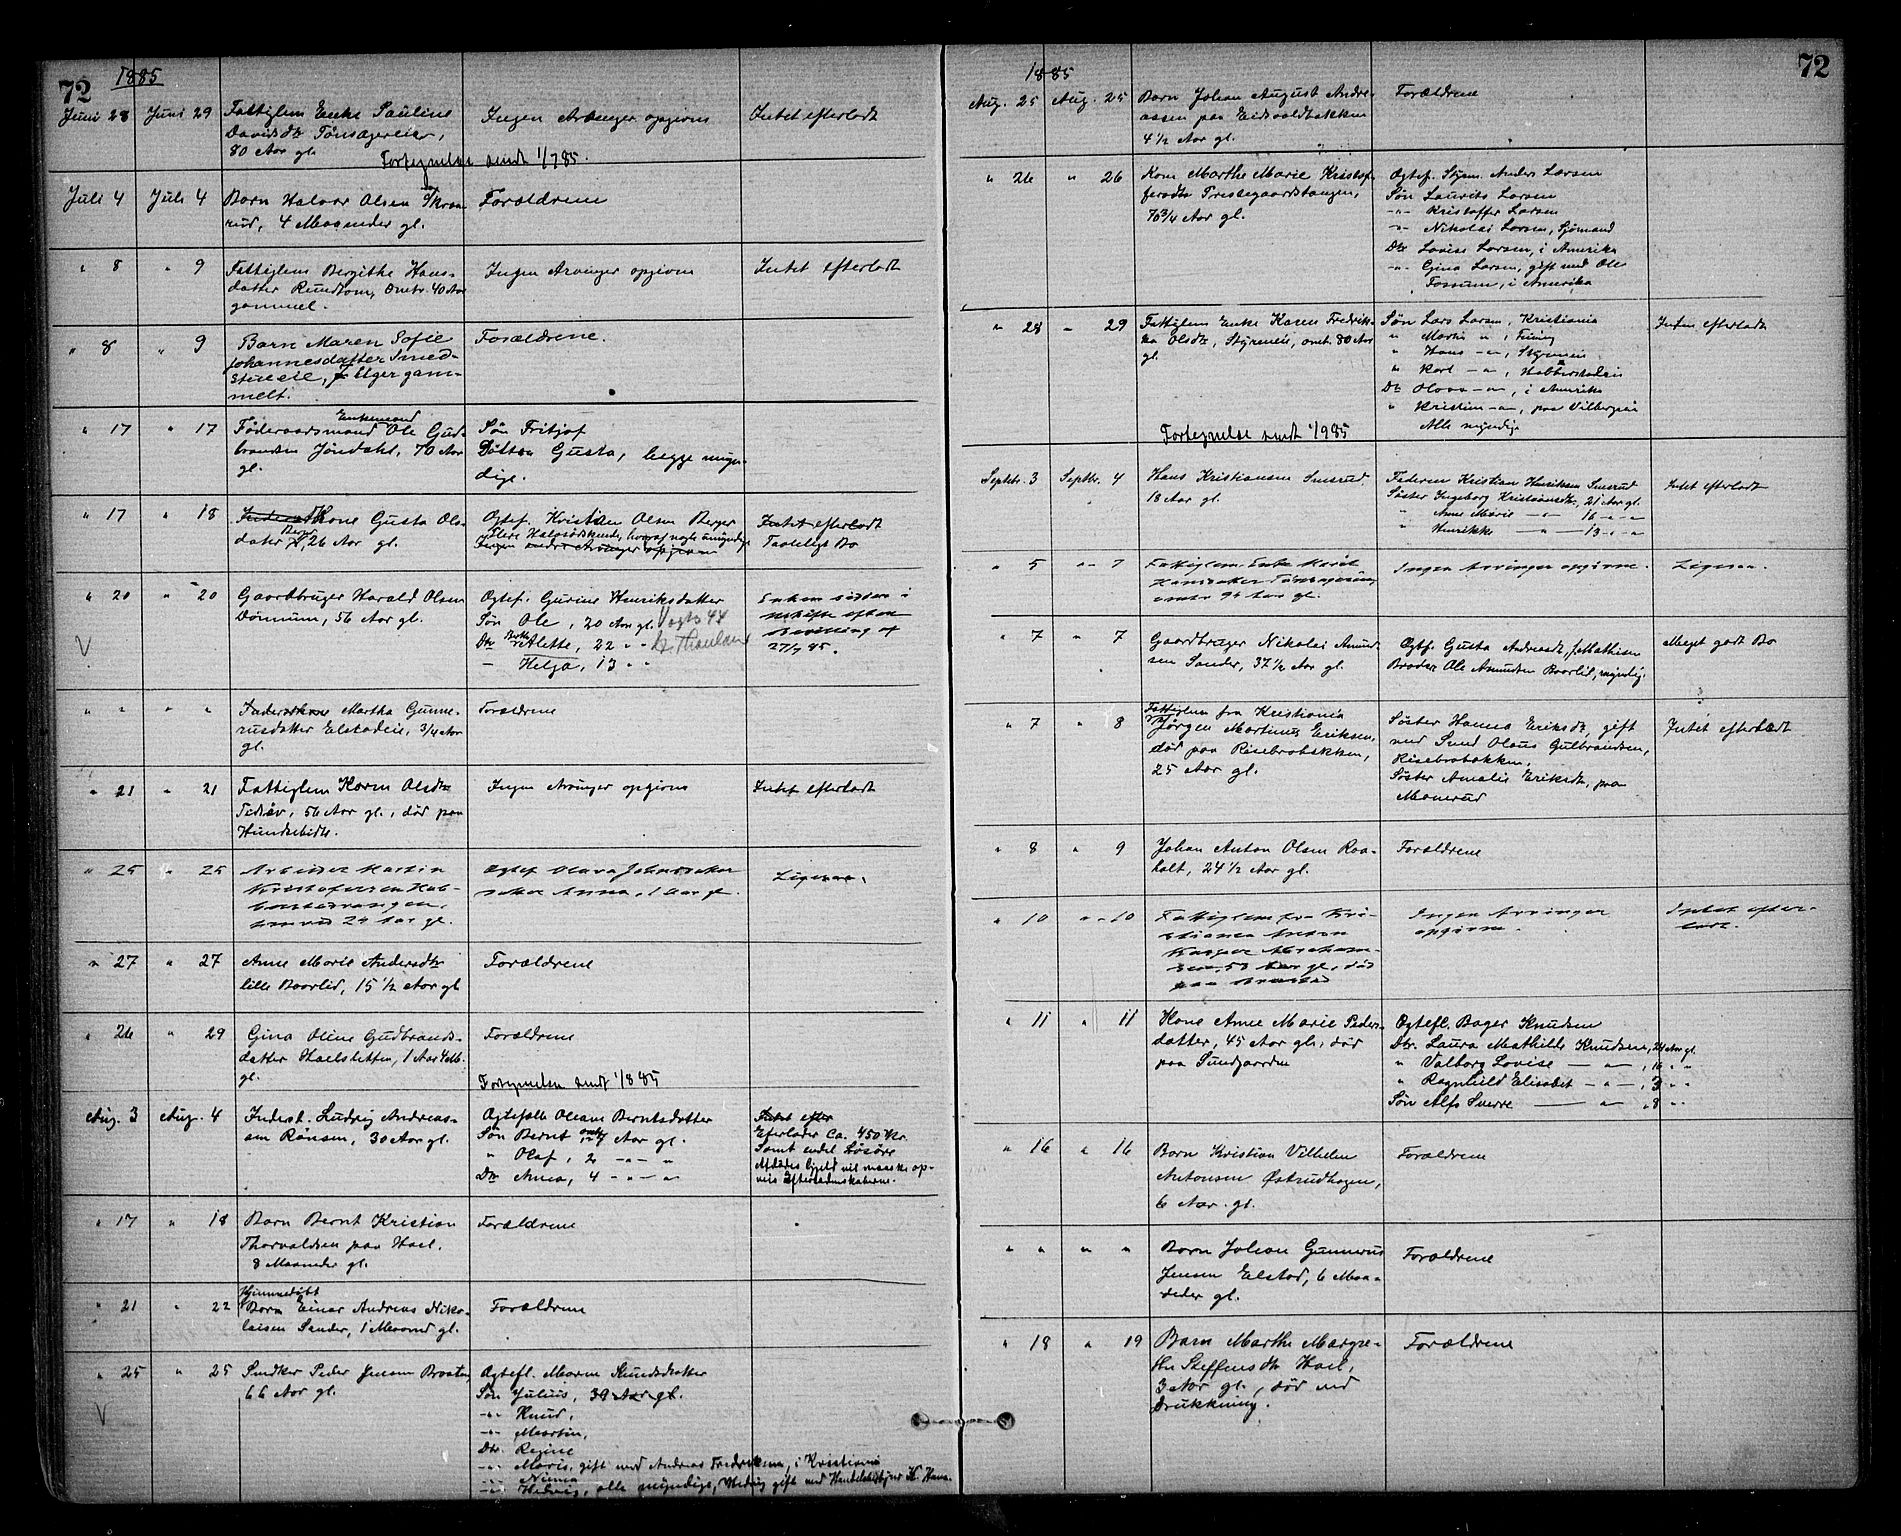 72
1885
Juni 28 Juni 29 Fattiglem Enke Pauline
Davidsdtr Tønsagereie,
80 Aar gl.
Ingen Arvinger opgivne
Intet efterladt
Fortegnelse sendt 1/7 85.
Juli 4 Juli 4 Barn Halvor Olsen Skraa-
rud, 4 Maaneder gl.
Forældrene
" 8 " 9 Fattiglem Bergithe Hans-
datter Rundtom, omtr. 40 Aar
gammel.
Ingen Arvinger opgivne
Intet efterladt
" 8 " 9 Barn Maren Sofie
Johannesdatter Smed-
stueeie, 7 Uger gam-
melt.
Forældrene.
" 17 " 17 Enkemand
Føderaadsmand Ole Gud-
brandsen Jøndahl, 70 Aar
gl.
Søn Fritjof
Datter Gusta, begge myn-
dige.
" 17 " 18 Kone Gusta Ols-
datter Berger, 26 Aar gl.
Ogtef. Kristian Olsen Berger
Flere Halvsødskende, hvoraf nogle umyndige
Ingen andre Arvinger opgivne
Intet efterladt
Taaleligt Bo
" 20 " 20 Gaardbruger Harald Olsen
Dønnum, 56 Aar gl.
Ogtef. Gurine Henriksdatter
Søn Ole, 20 Aar gl.
Dtr Alette, 22 " "
— Helga, 13 " "
Enken sidder i
uskifte efter
bevilling af
27/7 85.
V
" " " " Martha Gunne-
rusdatter Elstadeie, 3/4 Aar
gl.
Forældrene
" 21 " 21 Fattiglem Karen Olsdtr
56 Aar gl., død paa
Hundsebidt.
Ingen Arvinger opgivne
Intet efterladt
" 25 " 25 Arbeider Martin
Kristofersen
24 Aar gl.
Ogtef Olava Johnsdatter
datter Anna, 1 Aar gl.
Ligesaa.
" 27 " 27 Anne Marie Andersdtr
lille Baarlid, 15 1/2 Aar gl
Forældrene
" 26 " 29 Gina Oline Gudbrands-
datter Haelsletten, 1 Aar 4 M.
gl.
Forældrene
Fortegnelse sendt 1/8 85
Aug. 3 Aug. 4 Inderst. Ludvig Andreas-
sen Rønsen, 30 Aar gl.
Ogtefælle Oleane Berntsdatter
Søn Bernt omtr 7 Aar gl.
" Olaf, 2 —"— "
Dtr Anna, 4 —"— "
Intet efter
Efterlader Ca. 450 Kr.
Samt endel Løsøre
Afdødes Gjeld vil maaske op-
veie Efterladenskaberne.
" 17 " 18 Barn Bernt Kristian
Thorvaldsen paa Hael.
8 Maaneder gl.
Forældrene
" 21 " 22 Hjemmedøbt
Barn Einar Andreas Niko-
laisen Sander, 1 Maaned gl.
Forældrene
" 25 " 25 Snedker Peder Jensen Braaten,
66 Aar gl.
V
Ogtefl. Maren Knudsdatter
Søn Julius, 39 Aar gl.
—"— Knud,
—"— Martin,
Dtr. Regine
—"— Maria, gift med Andreas Fredriksen, i Kristiania
—"— Numa
—"— Hedvig, alle myndige, Hedvig gift med
72
1885
Aug. 25 Aug. 25 Barn Johan August Andre-
assen paa Eidsvoldbakken
4 1/2 Aar gl.
Forældrene
" 26 " 26 Kone Marthe Marie Kristof-
fersdtr Prestegaardstangen,
76 3/4 Aar gl.
Ogtef. Styrm. Anders Larsen
Søn Laurits Larsen
—"— Kristoffer Larsen
—"— Nikolai Larsen, Sjømand
Dtr Lovise Larsen, i Amerika
—"— Gina Larsen, gift med Ole
Fossum, i Amerika
" 28 " 29 Fattiglem Enke Karen Fredrik-
ka Olsdtr, Styrmeie, omtr. 80 Aar
gl.
Søn Lars Larsen, Kristiania
" Martin " ,
" Hans —"—, Styrmeie
" Karl —"—,
Dtr Olava —"—, i Amerika
" Kristine —"—, paa Vilbergeie
Alle myndige
Intet efterladt
Fortegnelse sendt 1/9 85
Septbr. 3 Septbr. 4 Hans Kristiansen Smerud,
18 Aar gl.
Faderen Kristian Henriksen Smerud
Søster Ingeborg Kristiansdtr, 21 Aar gl.
" Anne Marie —"— 16 —"—
" Henrikke —"— 13 —"—
Intet efterladt
" 5 " 7 Fattiglem Enke Marit
Hansdatter
omtr 94 Aar gl.
Ingen Arvinger opgivne.
Ligesaa.
" 7 " 7 Gaardbruger Nikolai Amund-
sen Sander, 37 1/2 Aar gl.
Ogtf. Gusta Andreasdt, f. Mathisen
Broder Ole Amundsen Baarlid, myndig.
Meget godt Bo
" 7 " 8 Fattiglem fra Kristiania
Jørgen Martinus Eriksen,
død paa Risebrobakken,
25 Aar gl.
Søster Hanna Eriksdt, gift
med Smed Olaus Gulbrandsen,
Risebrobakken.
Søster Amalie Eriksdt, paa
Manerud
Intet efterladt
" 8 " 9 Johan Anton Olsen Raa-
holt, 24 1/2 Aar gl.
Forældrene
" 10 " 10 Fattiglem fra Kri-
stiania Anton
Kasper Abraham-
sen, 53 Aar gl., død
paa
Ingen Arvinger
opgivne.
Intet efter-
ladt.
" 11 " 11 Kone Anne Marie Peders-
datter, 45 Aar gl., død
paa Sundgaarden
Ogtefl. Bager Knudsen
Dtr. Laura Mathilde Knudsen, 21 Aar gl.
" Valborg Lovise —"—, 16 " "
" Ragnhild Elisabet —"—, 3 " "
Søn Alfs Sverre —"—, 8 " "
" 16 " 16 Barn Kristian Vilhelm
Antonsen Østrudhagen,
6 Aar. gl.
Forældrene
" " " " Barn Johan Gunnerus
Jensen Elstad, 6 Maa-
neder gl.
Forældrene
" 18 " 19 Barn Marthe Margre-
the Steffensdtr Hael,
3 Aar gl., død ved
Drukkning.
Forældrene